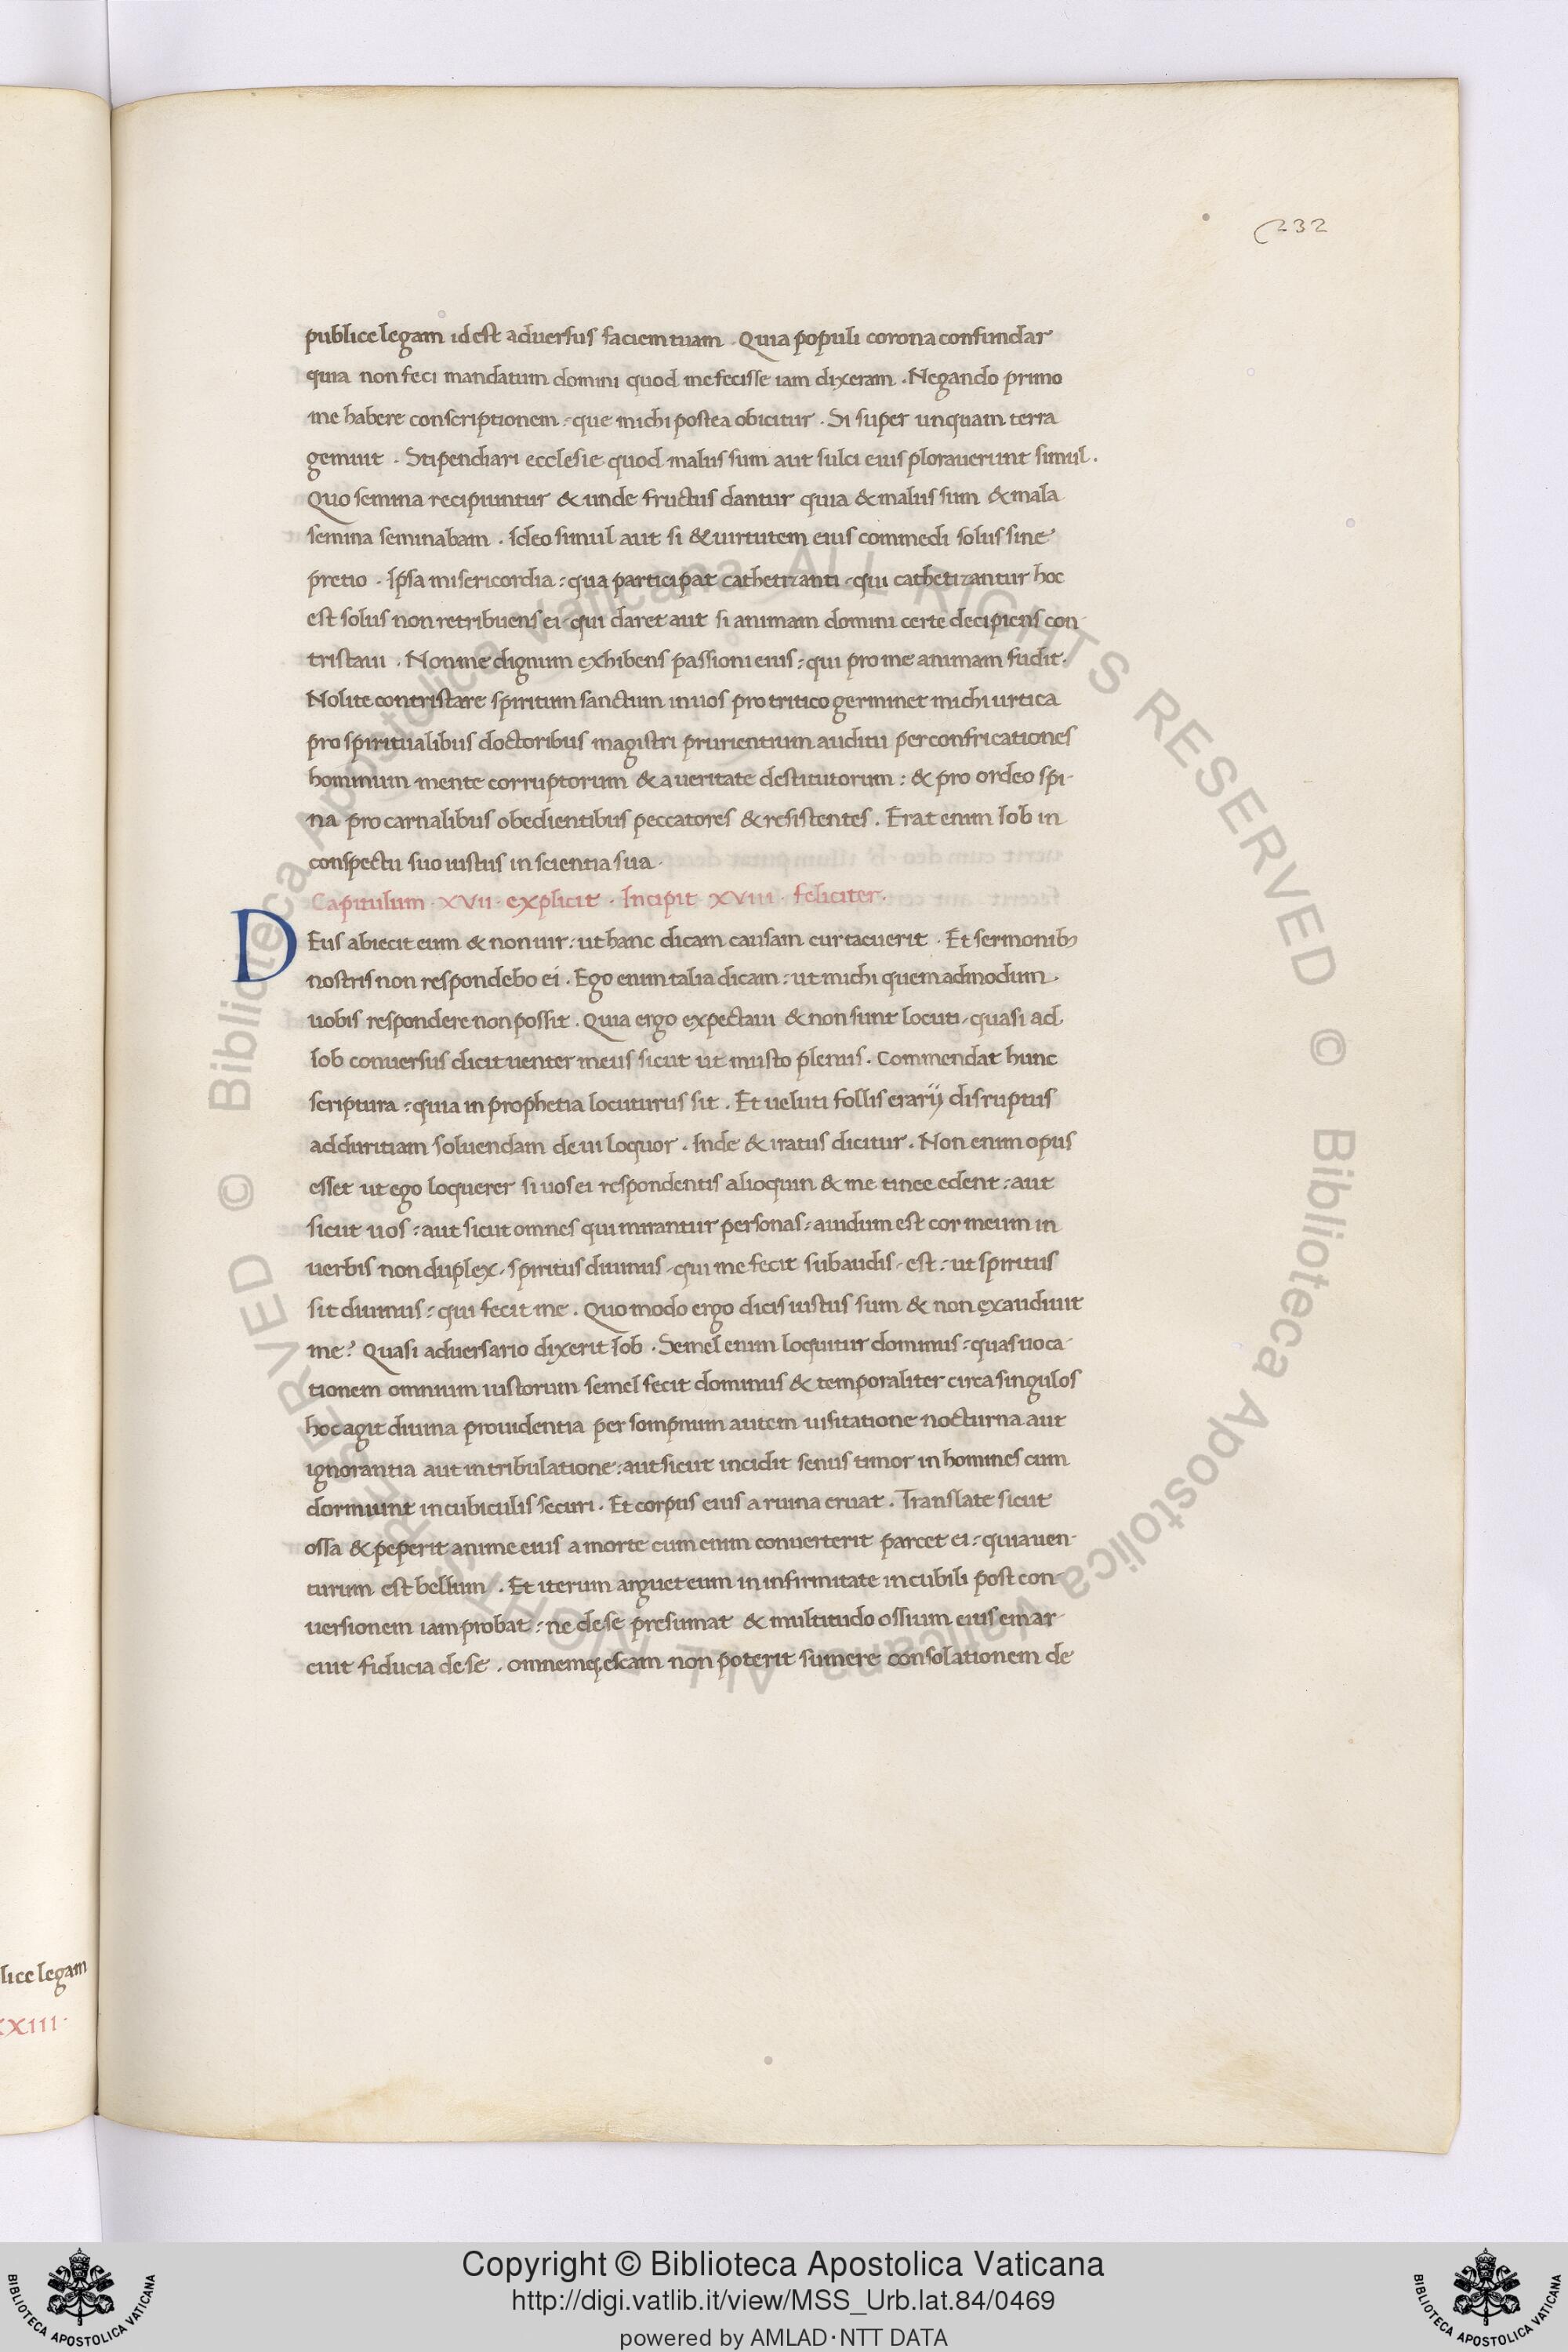 232
publice legam id est aduersus faciem tuam . Quia populi corona confundar
quia non feci mandatum domini quod me fecisse iam dixeram . Negando primo
me habere conscriptionem : que michi postea obicitur . Si super unquam terra
gemuit . Stipendiari ecclesie quod malus sum aut sulci eius plorauerunt simul .
Quo semina recipiuntur & unde fructus dantur quia & malus sum & mala
semina seminabam . Ideo simul aut si & uirtutem eius commedi solus sine
pretio . Ipsa misericordia : qua participat cathetizanti - qui cathetizantur hoc
est solus non retribuens ei - qui daret aut si animam domini certe decipiens con-
tristaui . Non me dignum exhibens passioni eius : qui pro me animam fudit .
Nolite contristare spiritum sanctum in uos pro tritico germinet michi urtica
pro spiritualibus doctoribus magistri prurientium auditu per confricationes
hominum mente corruptorum & a ueritate destitutorum : & pro ordeo spi-
na pro carnalibus obedientibus peccatores & resistentes . Erat enim Iob in
conspectu suo iustus in scientia sua .
Capitulum . XVII . explicit . Incipit . XVIII . feliciter .
DEus abiecit eum & non uir : ut hanc dicam causam cur tacuerit . Et sermonibꝫ
nostris non respondebo ei . Ego enim talia dicam : ut michi quem admodum .
uobis respondere non possit . Quia ergo expectaui & non sunt locuti - quasi ad
Iob conuersus dicit uenter meus sicut ut musto plenus . Commendat hunc
scriptura : quia in prophetia locuturus sit . Et ueluti follis erarij disruptus
ad duritiam soluendam de ui loquor . Inde & iratus dicitur . Non enim opus
esset ut ego loquerer si uos ei respondentis alioquin & me tinee edent : aut
sicut uos : aut sicut omnes qui mirantur personas : auidum est cor meum in
uerbis non duplex - spiritus diuinus - qui me fecit subaudis - est : ut spiritus
sit diuinus : qui fecit me . Quo modo ergo dicis iustus sum & non exaudiuit
me ? Quasi aduersario dixerit Iob . Semel enim loquitur dominus : quas uoca-
tionem omnium iustorum semel fecit dominus & temporaliter circa singulos
hoc agit diuina prouidentia per sompnum autem uisitatione nocturna aut
ignorantia aut in tribulatione : aut sicut incidit senus timor in homines cum
dormiunt in cubiculis securi . Et corpus eius a ruina eruat . Translate sicut
ossa & peperit anime eius a morte cum enim conuerterit parcet ei : quia uen-
turum est bellum . Et iterum arguet eum in infirmitate in cubili post con-
uersionem iam probat : ne de se presumat & multitudo ossium eius emar-
cuit fiducia de se . omnemqꝫ escam non poterit sumere consolationem de
lice legam
XXIII .
© Biblioteca Apostolica Vaticana ALL RIGHTS RESERVED © Biblioteca Apostolica Vaticana ALL RIGHTS RESERVED
Copyright © Biblioteca Apostolica Vaticana
http://digi.vatlib.it/view/MSS_Urb.lat.84/0469
powered by AMLAD·NTT DATA
BIBLIOTECA APOSTOLICA VATICANA
BIBLIOTECA APOSTOLICA VATICANA